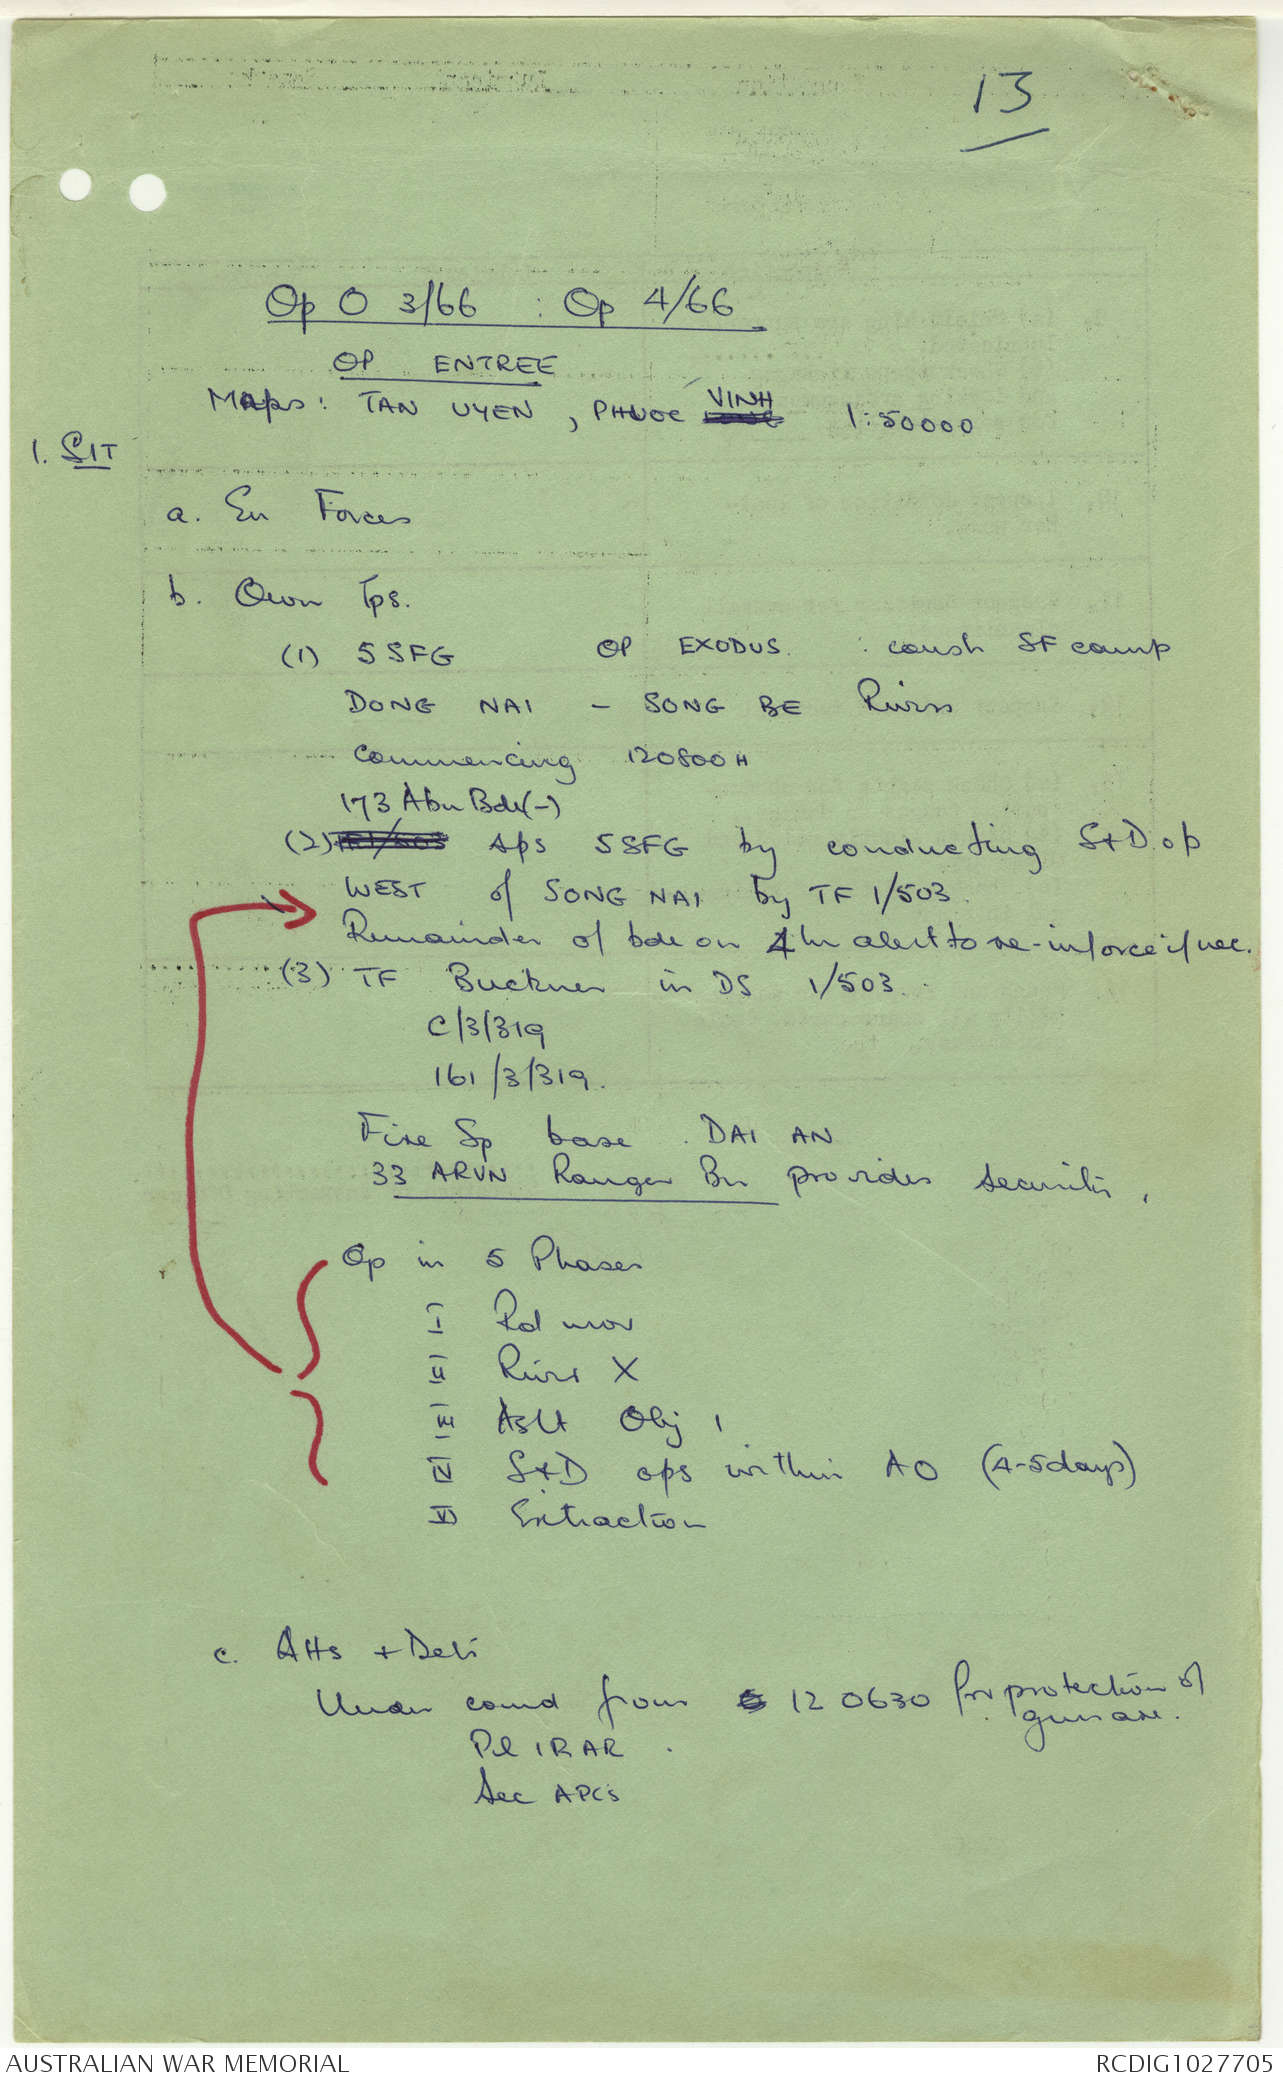 13
Op O 3/66 : Op 4/66
OP ENTREE
Maps: TAN UYEN, PHUOC VINH 1:50000
1. SIT
a. En Forces
b. Own Tps.
(1) 5 SFG OP EXODUS : const SF camp
DONG NAI - SONG BE Rivers
Commencing 120800H
173 Abn Bde(-)
(2) sps 5SFG by conducting S+D op
WEST of SONG NAI by TF 1/503.
Remainder of bde on 4 hr alert to re-inforce if nec.
(3) TF Buckner in DS 1/503.
C/3/319
161/3/319.
Fire Sp base. DAI AN
33 ARVN Ranger Bn provides security,
Op in 5 Phases
I Rd mov
II River X
III Aslt Obj 1
IV S+D ops within AO (4-5days)
V Extraction
c. Atts + Dets
Under comd from 12 0630 for protection of
gun are.
Pl 1RAR.
Sec APCs
AUSTRALIAN WAR MEMORIAL
RCDIG1027705